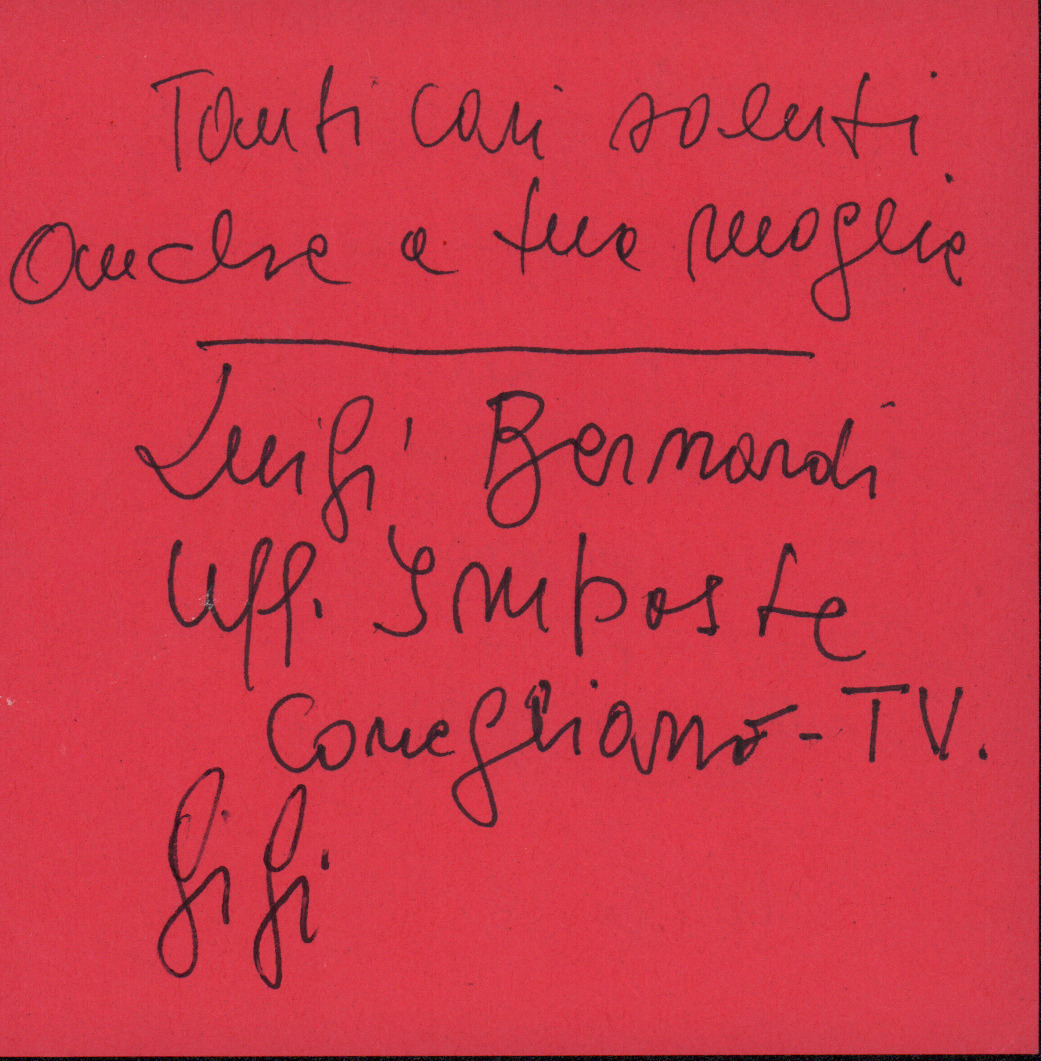 Tanti cari saluti
anche a tua moglie
Luigi Bernardi
Uff. Imposte
Conegliano - TV.
Gigi